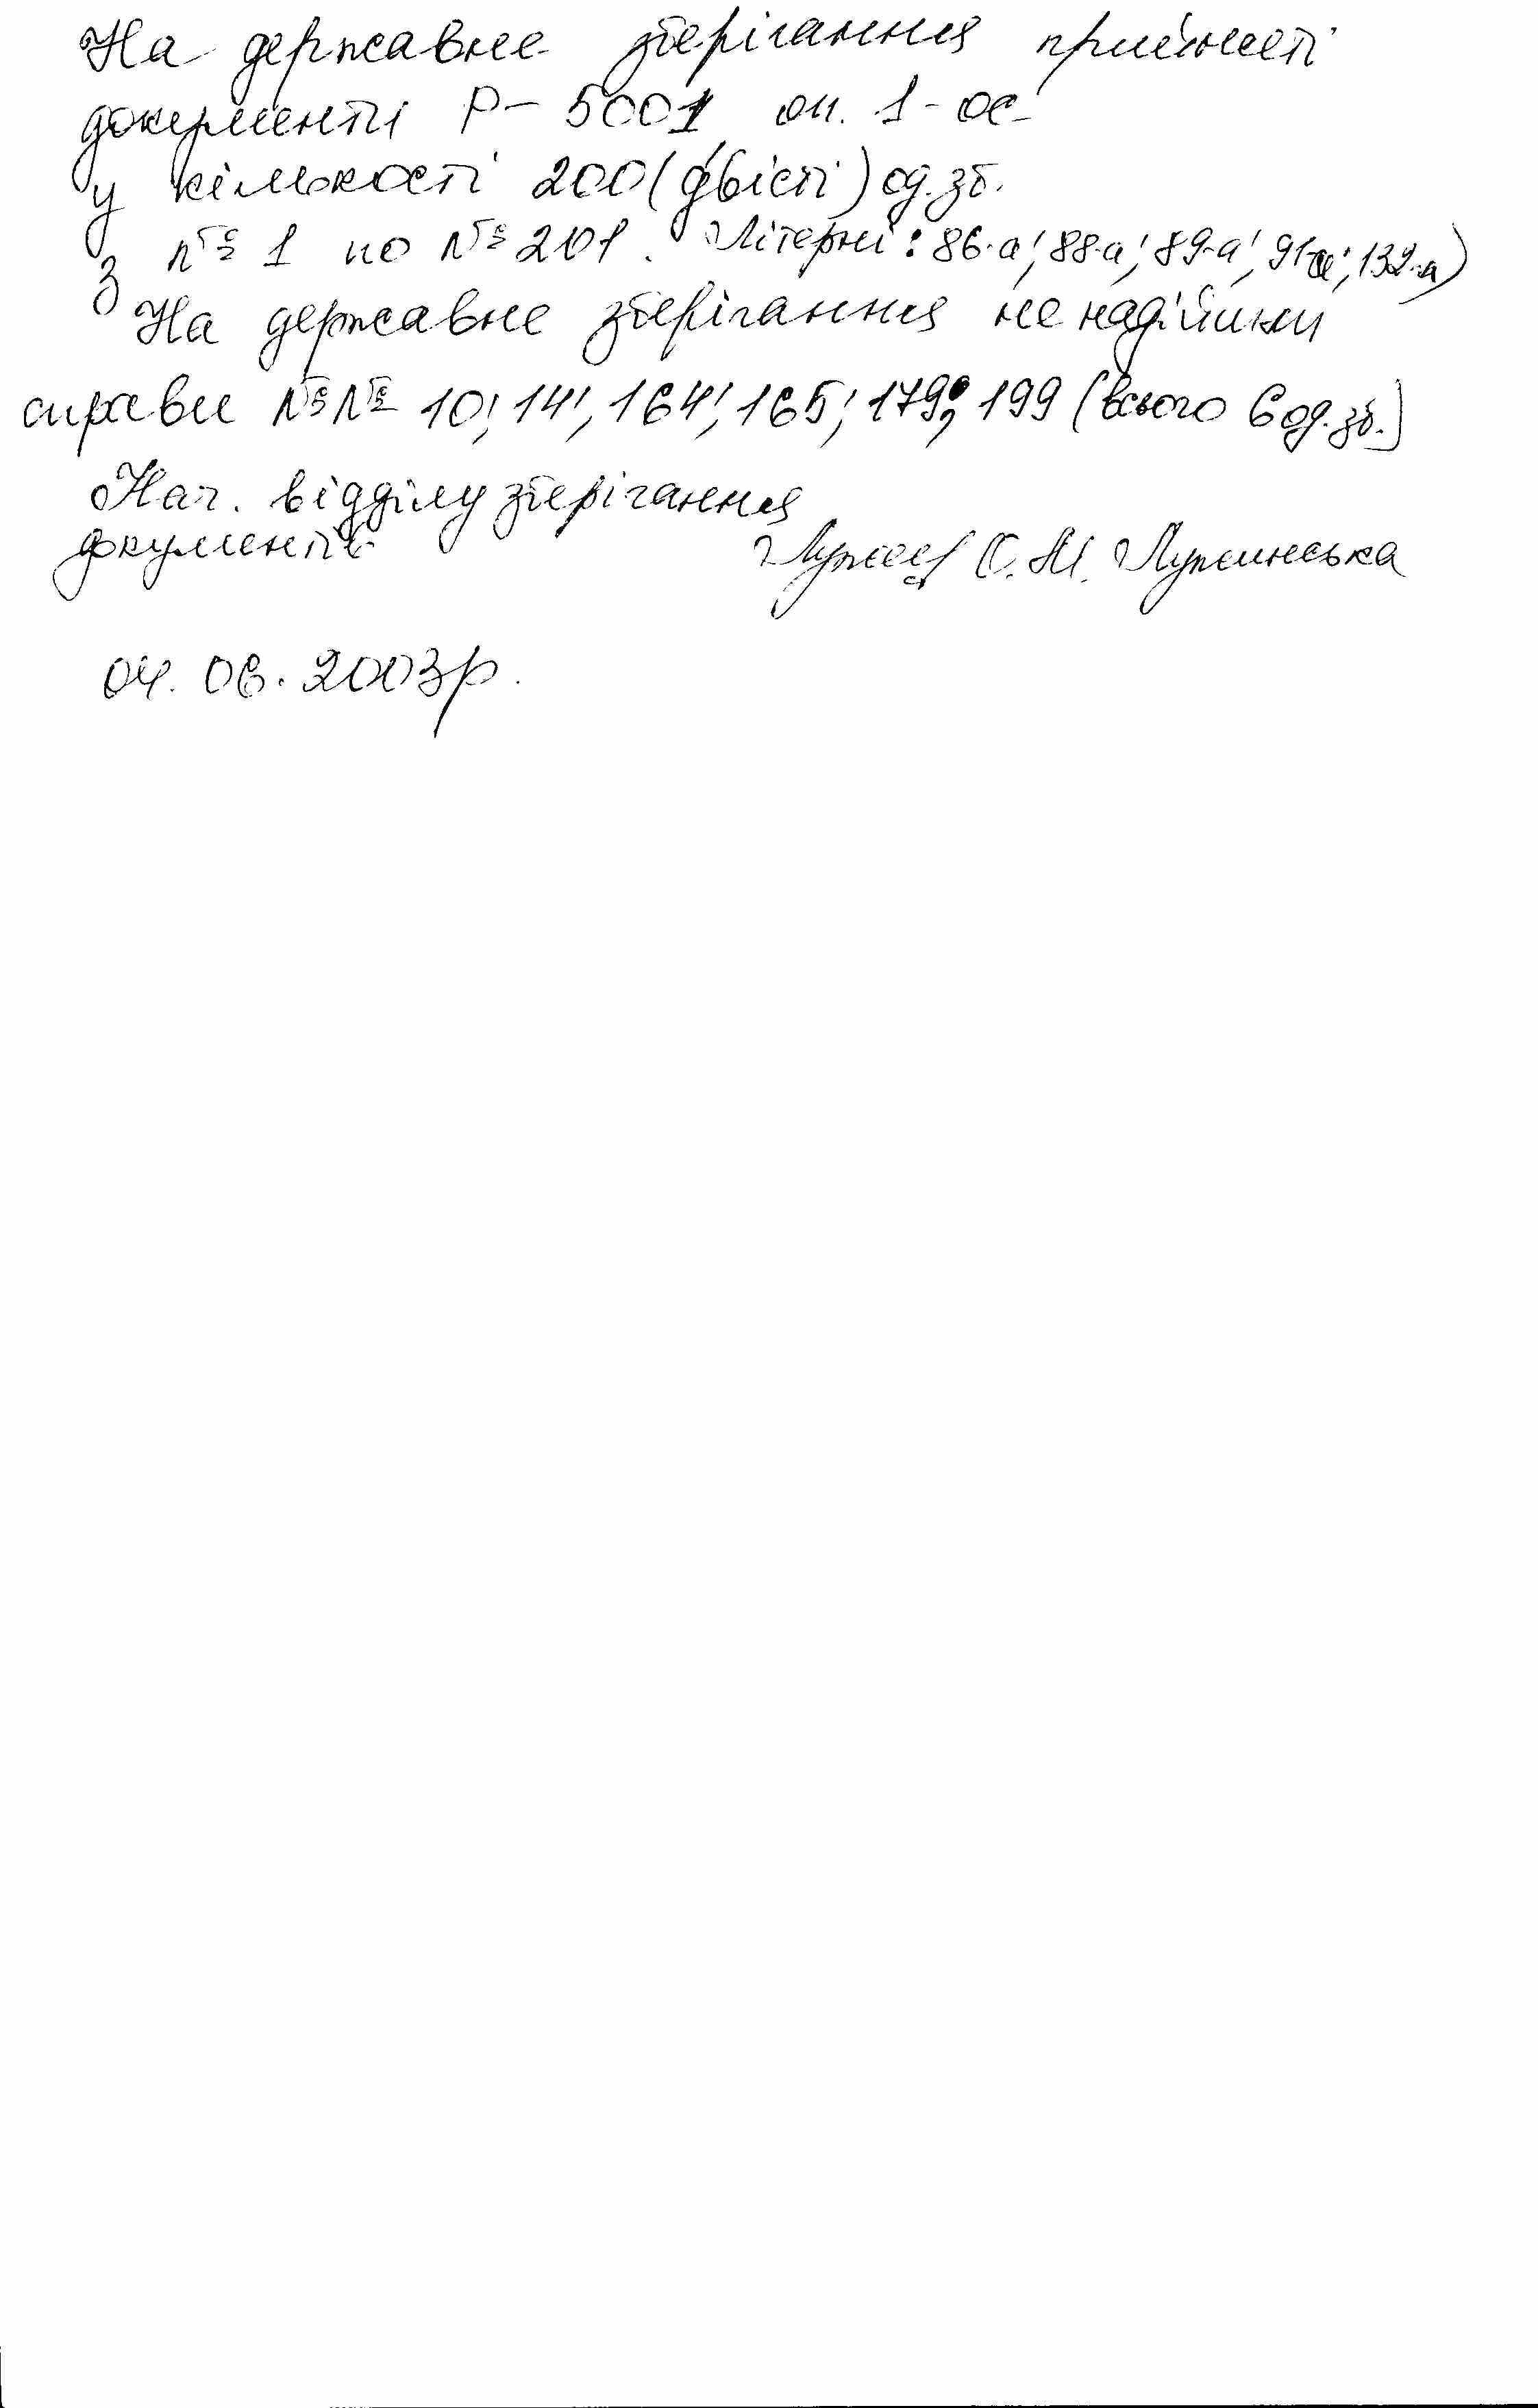 На державне зберігання прийняті
документи Р-5001 оп. 1-ос
у кількості 200 (двісті) од. зб.
з № 1 по № 201. Літерні: 86-а; 88-а; 89-а; 91-а; 132-а)
На державне зберігання не надійшли
справи №№ 10; 14; 164; 165; 179; 199 (всього 6 од. зб.)
Нач. відділу зберігання
документів С. М. Лупшинська
04. 06. 2003р.